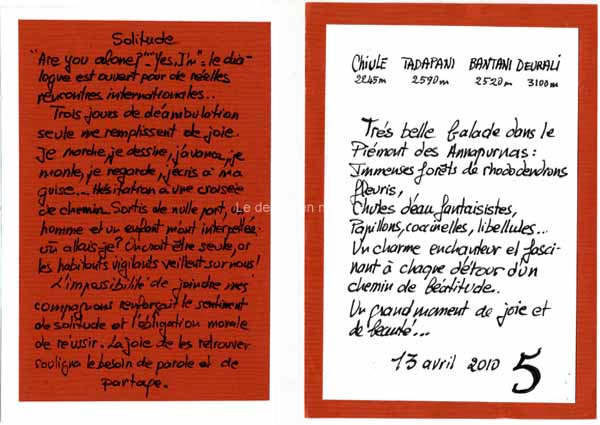 Solitude
"Are you alone?"_"Yes, I'm": le dia-
logue est ouvert pour de réelles
rencontres internationales...
Trois jours de déambulation
seule me remplissent de joie.
Je marche, je dessine, j'avance, je
monte, je regarde, j'écris à ma
guise... Hésitation à une croisée
de chemin. Sortis de nulle part, un
homme et un enfant m'ont interpellée:
où allais-je? On croit être seule, or
les habitants vigilants veillent sur nous!
L'impossibilité de joindre mes
compagnons renforçait le sentiment
de solitude et l'obligation morale
de réussir. La joie de les retrouver
souligna le besoin de parole et de
partage.
Le de en n
CHIULE TADAPANI BANTANI DEURALI
2245m 2590m 2520m 3100m
Très belle balade dans le
Piémont des Annapurnas:
Immenses forêts de rhododendrons
fleuris,
Chutes d'eau fantaisistes,
Papillons, coccinelles, libellules...
Un charme enchanteur et fasci-
nant à chaque détour d'un
chemin de béatitude..
Un grand moment de joie et
de beauté...
13 avril 2010
5